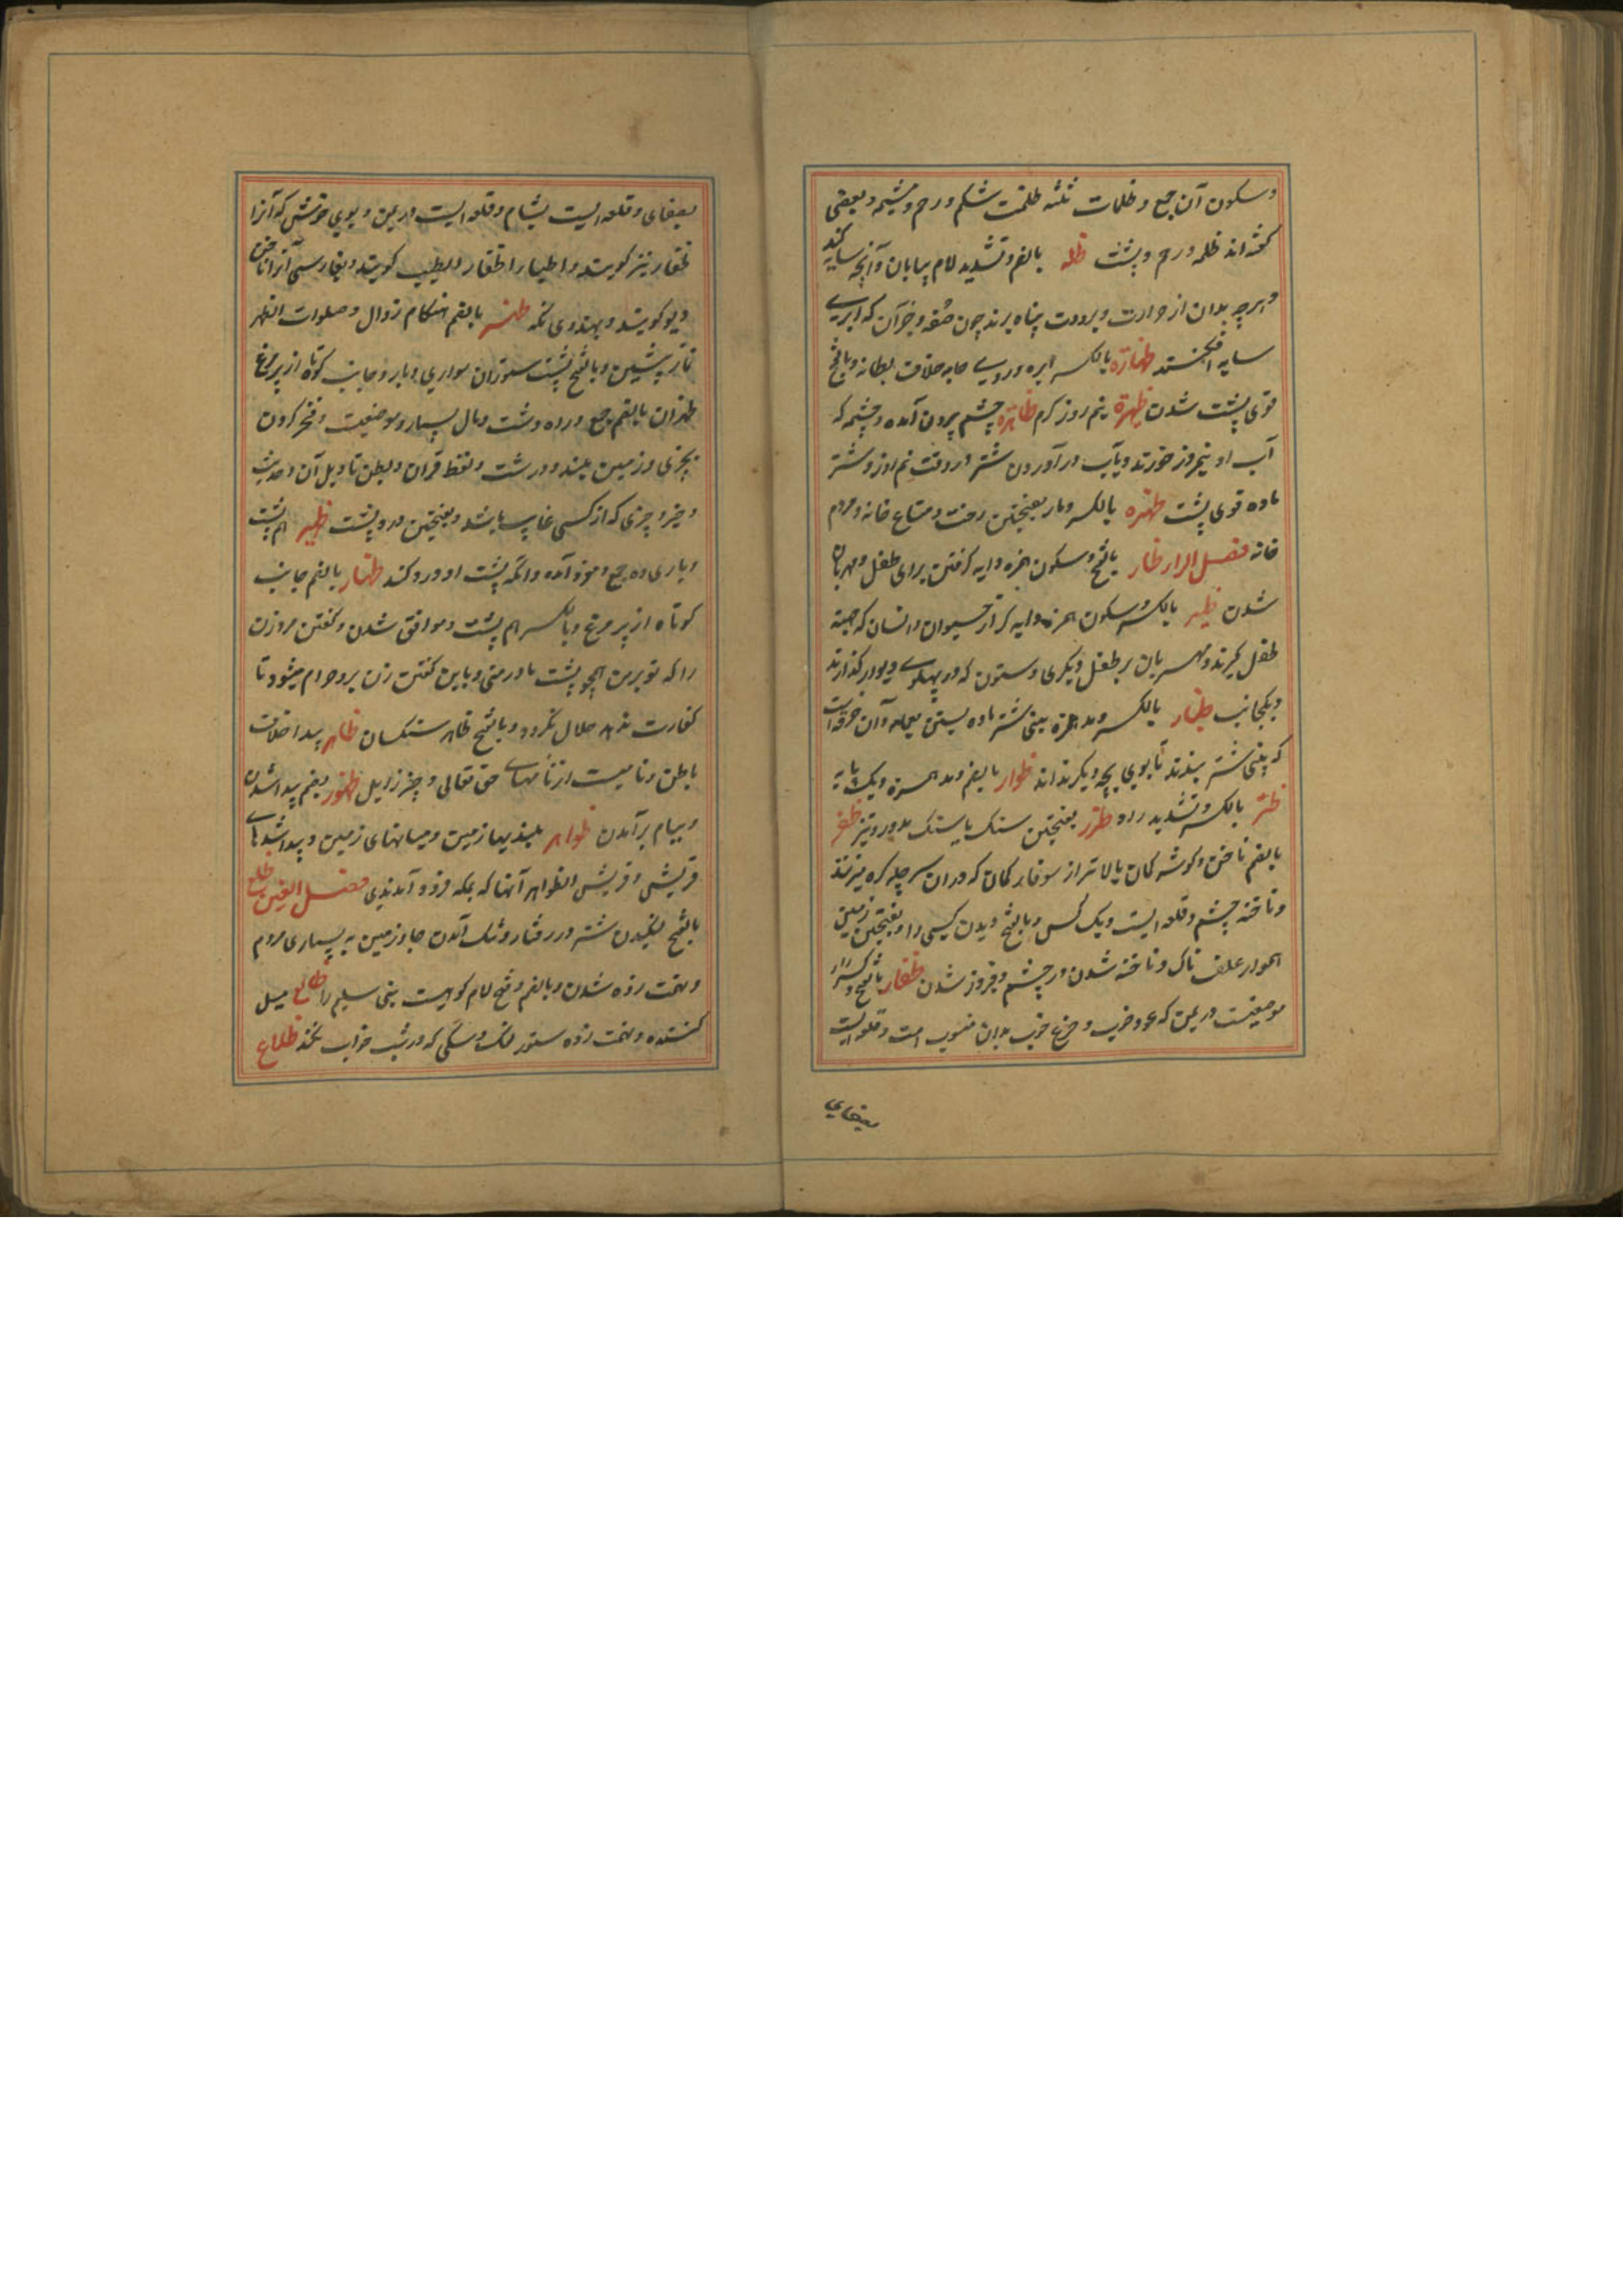 و سکون آن جمع و ظلمات ثلثه ظلمت شکم و رحم و مشیمه و بعضی
گفته اند ظلمه و رحم و پشت ظله بالضم و تشدید لام سایبان و آنچه سایه کند
و هرچه بدان از حرارت و برودت پناه برند چون صفه و جز آن که ابری
سایه افکنند ظهارة بالکسر ابره و روی جامه خلاف بطانه و بالفتح
قوی پشت شدن ظهیرة نیم روز گرم ظاهرة چشم بیرون آمده و چشمه که
آب او نیمروز خورند و بآب درآوردن شتر در وقت نیم روز و شتر
ماده قوی پشت ظهره بالکسر و بفتحتین رخت و متاع خانه و مردم
خانه فصل الراء ظار بالفتح و سکون همزه دایه گرفتن برای طفل و مهربان
شدن ظیر بالکسر و سکون همزه دایه کر از حیوان و انسان که جهة
طفل گیرند و مهربان بر طفل دیگری و ستون که در پهلوی دیوار گذارند
و یکجانب ظئار بالکسر و مد همزه بینی شتر ماده بستن بعمامه و آن خرقه است
که بینی شتر بندند تا بوی بچه دیگر نداند ظوار بالضم و مد همزه دیک پایه
ظر بالکسر و تشدید راء ظرر بفتحتین سنک یا سنک مدور و تیز ظفر
بالضم ناخن و گوشه کمان بالاتر از سوفار کمان که در ان سر چله گره میزنند
و ناخنه چشم و قلعه ایست و یک کس و بالفتح دیدن کسی را و بفتحتین زمین
هموار علف ناک و ناخنه شدن در چشم و فیروز شدن ظفار بالفتح و کسر راء
موضعیست در یمن که عود خوب و جزع خوب بدان منسوب است و قلعه ایست
بصفای
بصفای و قلعه ایست بشام و قلعه ایست در یمن و بوی خوشی که آنرا
ظفار نیز گویند و اطیار اظفار الطیب گویند و بفارسی آنرا ناخن
دیو گویند و بهندوی نکه ظهر بالضم هنگام زوال و صلوات الظهر
نماز پیشین و بالفتح پشت ستوران سواری و بار و جانب کوتاه از پر مرغ
ظهران بالضم جمع و راه دشت و مال بسیار و موضعیست و فخر کردن
بچیزی و زمین بلند و درشت و لفظ قرآن و بطن تاویل آن و حدیث
و خبر و چیزی که از کسی غایب باشد و بفتحتین درد پشت ظهیر هم پشت
و یاری ده جمع و مفرد آمده و آنکه پشت او درد کند ظهار بالضم جانب
کوتاه از پر مرغ و بالکسر هم پشت و موافق شدن و گفتن مرد زن
را که تو بر من همچو پشت مادر منی و باین گفتن زن بر او حرام میشود تا
کفارت ندهد حلال نگردد و بالفتح ظاهر سنکستان ظاهر پیدا خلاف
باطن و نامیست از نامهای حق تعالی و چیز زایل ظهور بضم پیدا شدن
و ببام برآمدن ظواهر بلندیها زمین و میانهای زمین و پیدا شدهای
قریش و قریش الظواهر آنها که بمکه فرود آمدندی فصل العین ظلع
بالفتح لنگیدن شتر در رفتار و تنگ آمدن جا و زمین به بسیاری مردم
و تهمت زده شدن و بالضم و فتح لام کوهیست بنی سلیم را ظالع میل
کننده و تهمت زده ستور لنک و سگی که در شب خواب نکند ظلاع